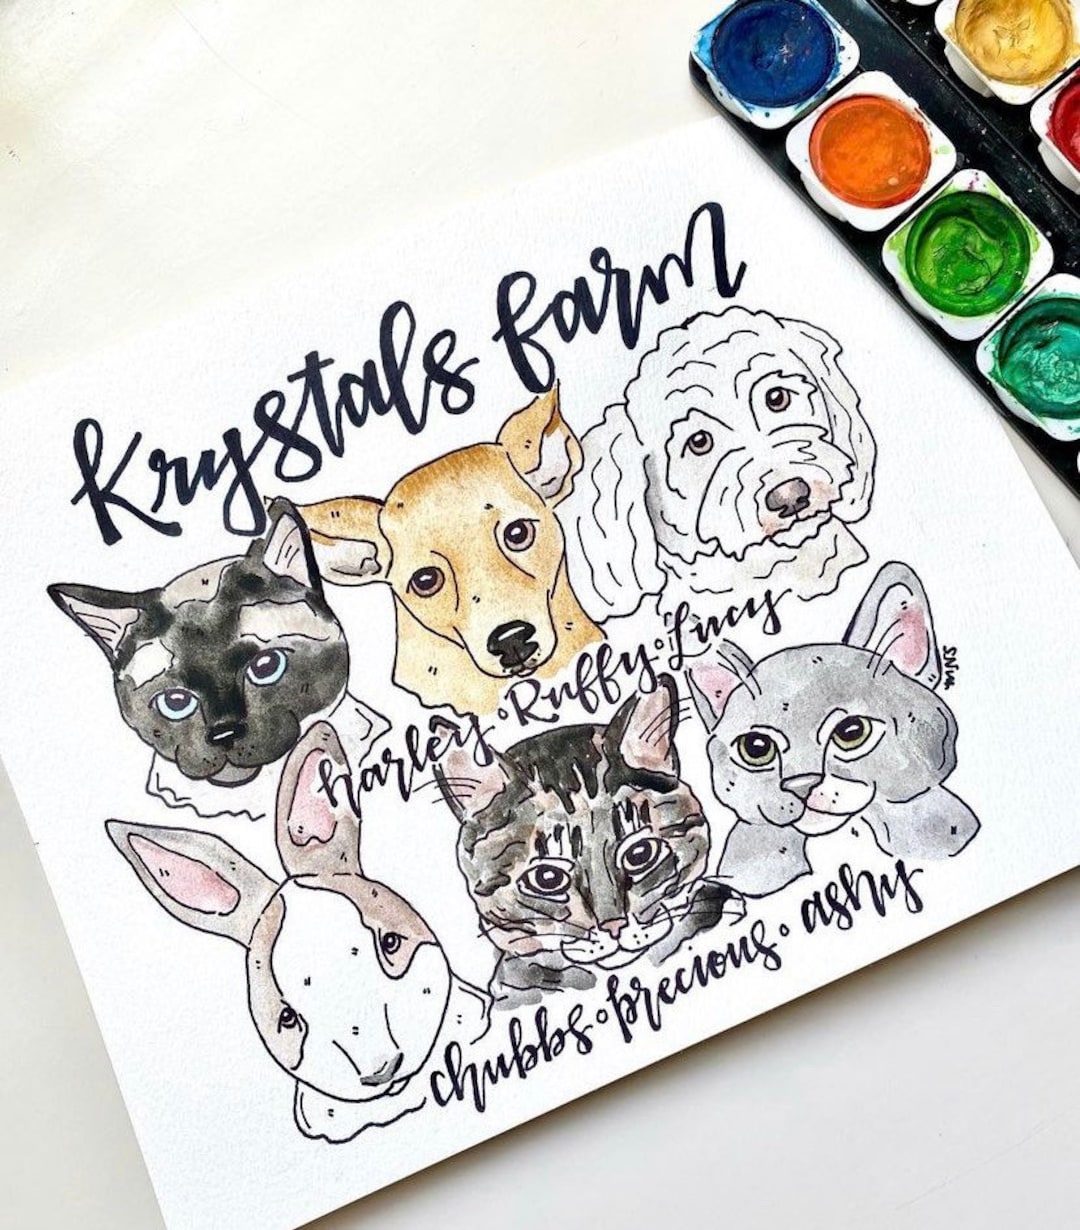 Krystals farm
harley • Ruffy • Lucy
chubbs • precious • ashy